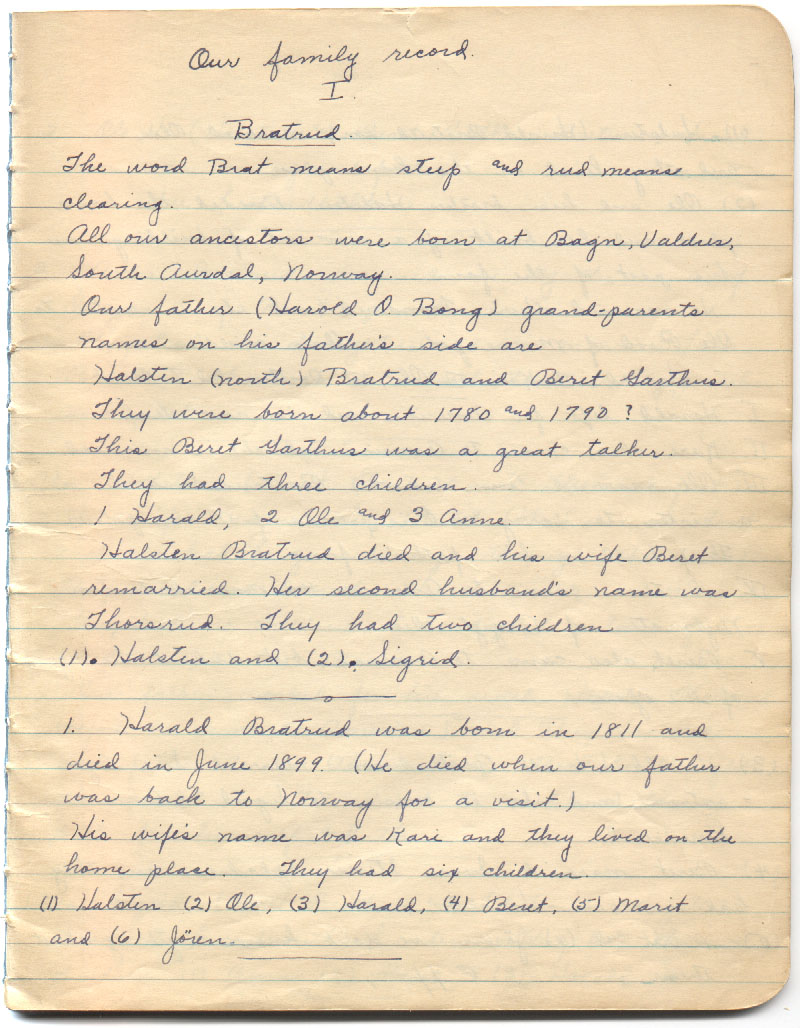 Our family record.
I.
Bratrud.
The word Brat means steep and rud means
clearing.
All our ancestors were born at Bagn, Valdres,
South Aurdal, Norway.
Our father (Harold O. Bong) grand-parents
names on his father's side are
Halsten (north) Bratrud and Beret Garthus.
They were born about 1780 and 1790?
This Beret Garthus was a great talker.
They had three children.
1 Harald, 2 Ole and 3 Anne.
Halsten Bratrud died and his wife Beret
remarried. Her second husband's name was
Thorsrud. They had two children
(1). Halsten and (2). Sigrid.
1. Harald Bratrud was born in 1811 and
died in June 1899. (He died when our father
was back to Norway for a visit.)
His wife's name was Kari and they lived on the
home place. They had six children.
(1) Halsten (2) Ole, (3) Harald, (4) Beret, (5) Marit
and (6) Jören.